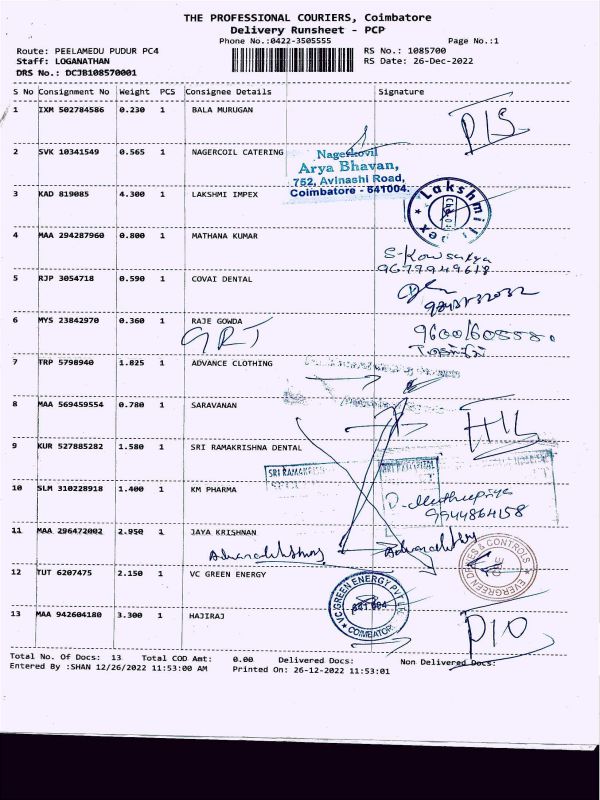 THE PROFESSIONAL COURIERS, Coimbatore
Delivery Runsheet - PCP
Phone No.:0422-3505555 Page No.:1
Route: PEELAMEDU PUDUR PC4 RS No.: 1085700
Staff: LOGANATHAN RS Date: 26-Dec-2022
DRS No.: DCJB108570001
S No Consignment No Weight PCS Consignee Details Signature
1 IXM 502784586 0.230 1 BALA MURUGAN
P/S
2 SVK 10341549 0.565 1 NAGERCOIL CATERING
Nagerkovil
Arya Bhavan,
752, Avinashi Road,
Coimbatore - 641004.
3 KAD 819085 4.300 1 LAKSHMI IMPEX
Lakshmi Impex
4 MAA 294287960 0.800 1 MATHANA KUMAR
S-Kowsalya
9677949618
5 RJP 3054718 0.590 1 COVAI DENTAL
6 MYS 23842970 0.360 1 RAJE GOWDA
GRT
9600160558
7 TRP 5798940 1.825 1 ADVANCE CLOTHING
8 MAA 569459554 0.780 1 SARAVANAN
9 KUR 527885282 1.580 1 SRI RAMAKRISHNA DENTAL
SRI RAMAKRISH
10 SLM 310228918 1.400 1 KM PHARMA
9944864158
11 MAA 296472002 2.950 1 JAYA KRISHNAN
12 TUT 6207475 2.150 1 VC GREEN ENERGY
EVERGREEN DRIVES & CONTROLS
VC GREEN ENERGY PVT LTD
641 004
COIMBATORE
13 MAA 942604180 3.300 1 HAJIRAJ
Total No. Of Docs: 13 Total COD Amt: 0.00 Delivered Docs: Non Delivered Docs:
Entered By :SHAN 12/26/2022 11:53:00 AM Printed On: 26-12-2022 11:53:01